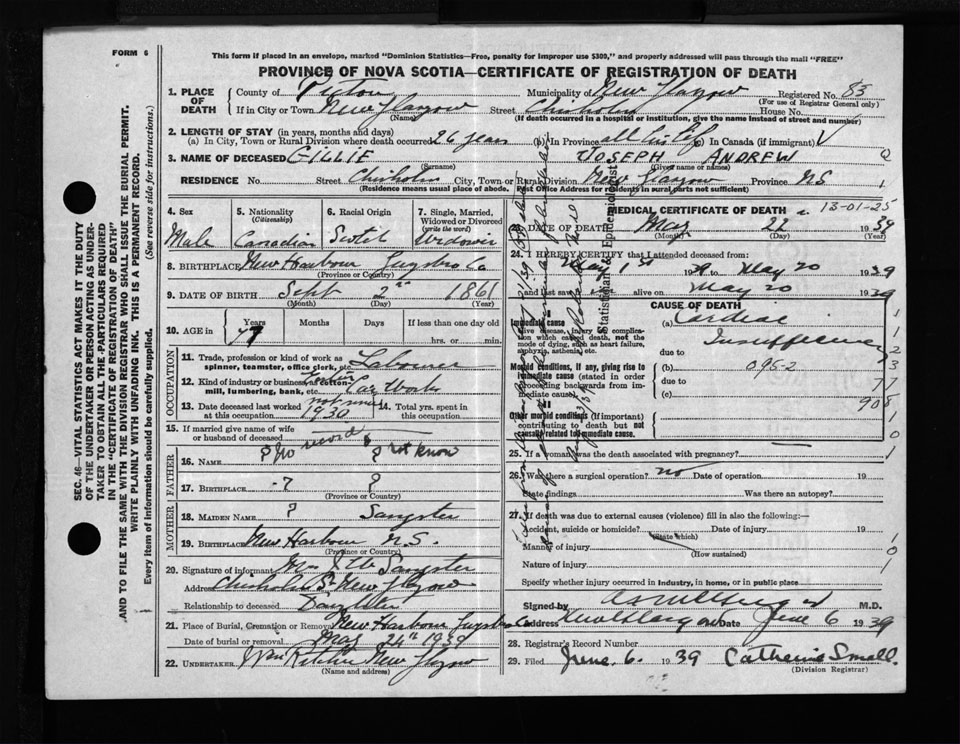 FORM 6
This form if placed in an envelope, marked "Dominion Statistics—Free, penalty for improper use $300," and properly addressed will pass through the mail "FREE"
PROVINCE OF NOVA SCOTIA—CERTIFICATE OF REGISTRATION OF DEATH
1. PLACE OF DEATH County of Pictou Municipality of New Glasgow Registered No. 83
(For use of Registrar General only)
If in City or Town New Glasgow Street Chisholm House No.
(Name) (If death occurred in a hospital or institution, give the name instead of street and number)
2. LENGTH OF STAY (in years, months and days)
(a) In City, Town or Rural Division where death occurred 26 years (b) In Province all his life (c) In Canada (if immigrant)
3. NAME OF DECEASED GILLIE JOSEPH ANDREW
(Surname) (Given name or names)
RESIDENCE No. Street Chisholm City, Town or Rural Division New Glasgow Province N.S.
(Residence means usual place of abode. Post Office Address for residents in rural parts not sufficient)
4. Sex 5. Nationality (Citizenship) 6. Racial Origin 7. Single, Married, Widowed or Divorced (write the word)
Male Canadian Scotch Widower
8. BIRTHPLACE New Harbour Guysboro Co
(Province or Country)
9. DATE OF BIRTH Sept 2nd 1861
(Month) (Day) (Year)
10. AGE in Years Months Days If less than one day old
77 hrs. or min.
OCCUPATION
11. Trade, profession or kind of work as spinner, teamster, office clerk, etc. Labourer
12. Kind of industry or business, as cotton-mill, lumbering, bank, etc. Car Works
13. Date deceased last worked at this occupation not since 1930
14. Total yrs. spent in this occupation
15. If married give name of wife or husband of deceased
FATHER
16. NAME ? No record ? not know
17. BIRTHPLACE - ? ?
(Province or Country)
MOTHER
18. MAIDEN NAME ? Sangster
19. BIRTHPLACE New Harbour N.S.
(Province or Country)
20. Signature of informant Mrs Sangster
Address Chisholm St New Glasgow
Relationship to deceased Daughter
21. Place of Burial, Cremation or Removal New Harbour Guysboro Co
Date of burial or removal May 24th 1939
22. UNDERTAKER Wm Ritchie New Glasgow
(Name and address)
MEDICAL CERTIFICATE OF DEATH
13-01-25
23. DATE OF DEATH May 22 1939
(Month) (Day) (Year)
24. I HEREBY CERTIFY that I attended deceased from:
May 1st 1939 to May 20 1939
and last saw alive on May 20 1939
CAUSE OF DEATH
Immediate cause
Give disease, injury or complication which caused death, not the mode of dying, such as heart failure, asphyxia, asthenia, etc.
(a) Cardiac Insufficiency
due to
Morbid conditions, if any, giving rise to immediate cause (stated in order proceeding backwards from immediate cause)
(b) 095-2
due to
(c)
Other morbid conditions (if important) contributing to death but not causally related to immediate cause.
25. If a woman was the death associated with pregnancy?
26. Was there a surgical operation? no Date of operation 19
State findings Was there an autopsy?
27. If death was due to external causes (violence) fill in also the following:—
Accident, suicide or homicide? Date of injury 19
(State which)
Manner of injury
(How sustained)
Nature of injury
Specify whether injury occurred in industry, in home, or in public place
Signed by M.D.
Address New Glasgow Date June 6 1939
28. Registrar's Record Number
29. Filed June 6. 1939 Catherine Small.
(Division Registrar)
Statistician & Epidemiologist
SEC. 46—VITAL STATISTICS ACT MAKES IT THE DUTY OF THE UNDERTAKER OR PERSON ACTING AS UNDERTAKER TO OBTAIN ALL THE PARTICULARS REQUIRED IN THE "CERTIFICATE OF REGISTRATION OF DEATH"
AND TO FILE THE SAME WITH THE DIVISION REGISTRAR WHO SHALL ISSUE THE BURIAL PERMIT.
WRITE PLAINLY WITH UNFADING INK. THIS IS A PERMANENT RECORD.
Every item of information should be carefully supplied. (See reverse side for instructions.)